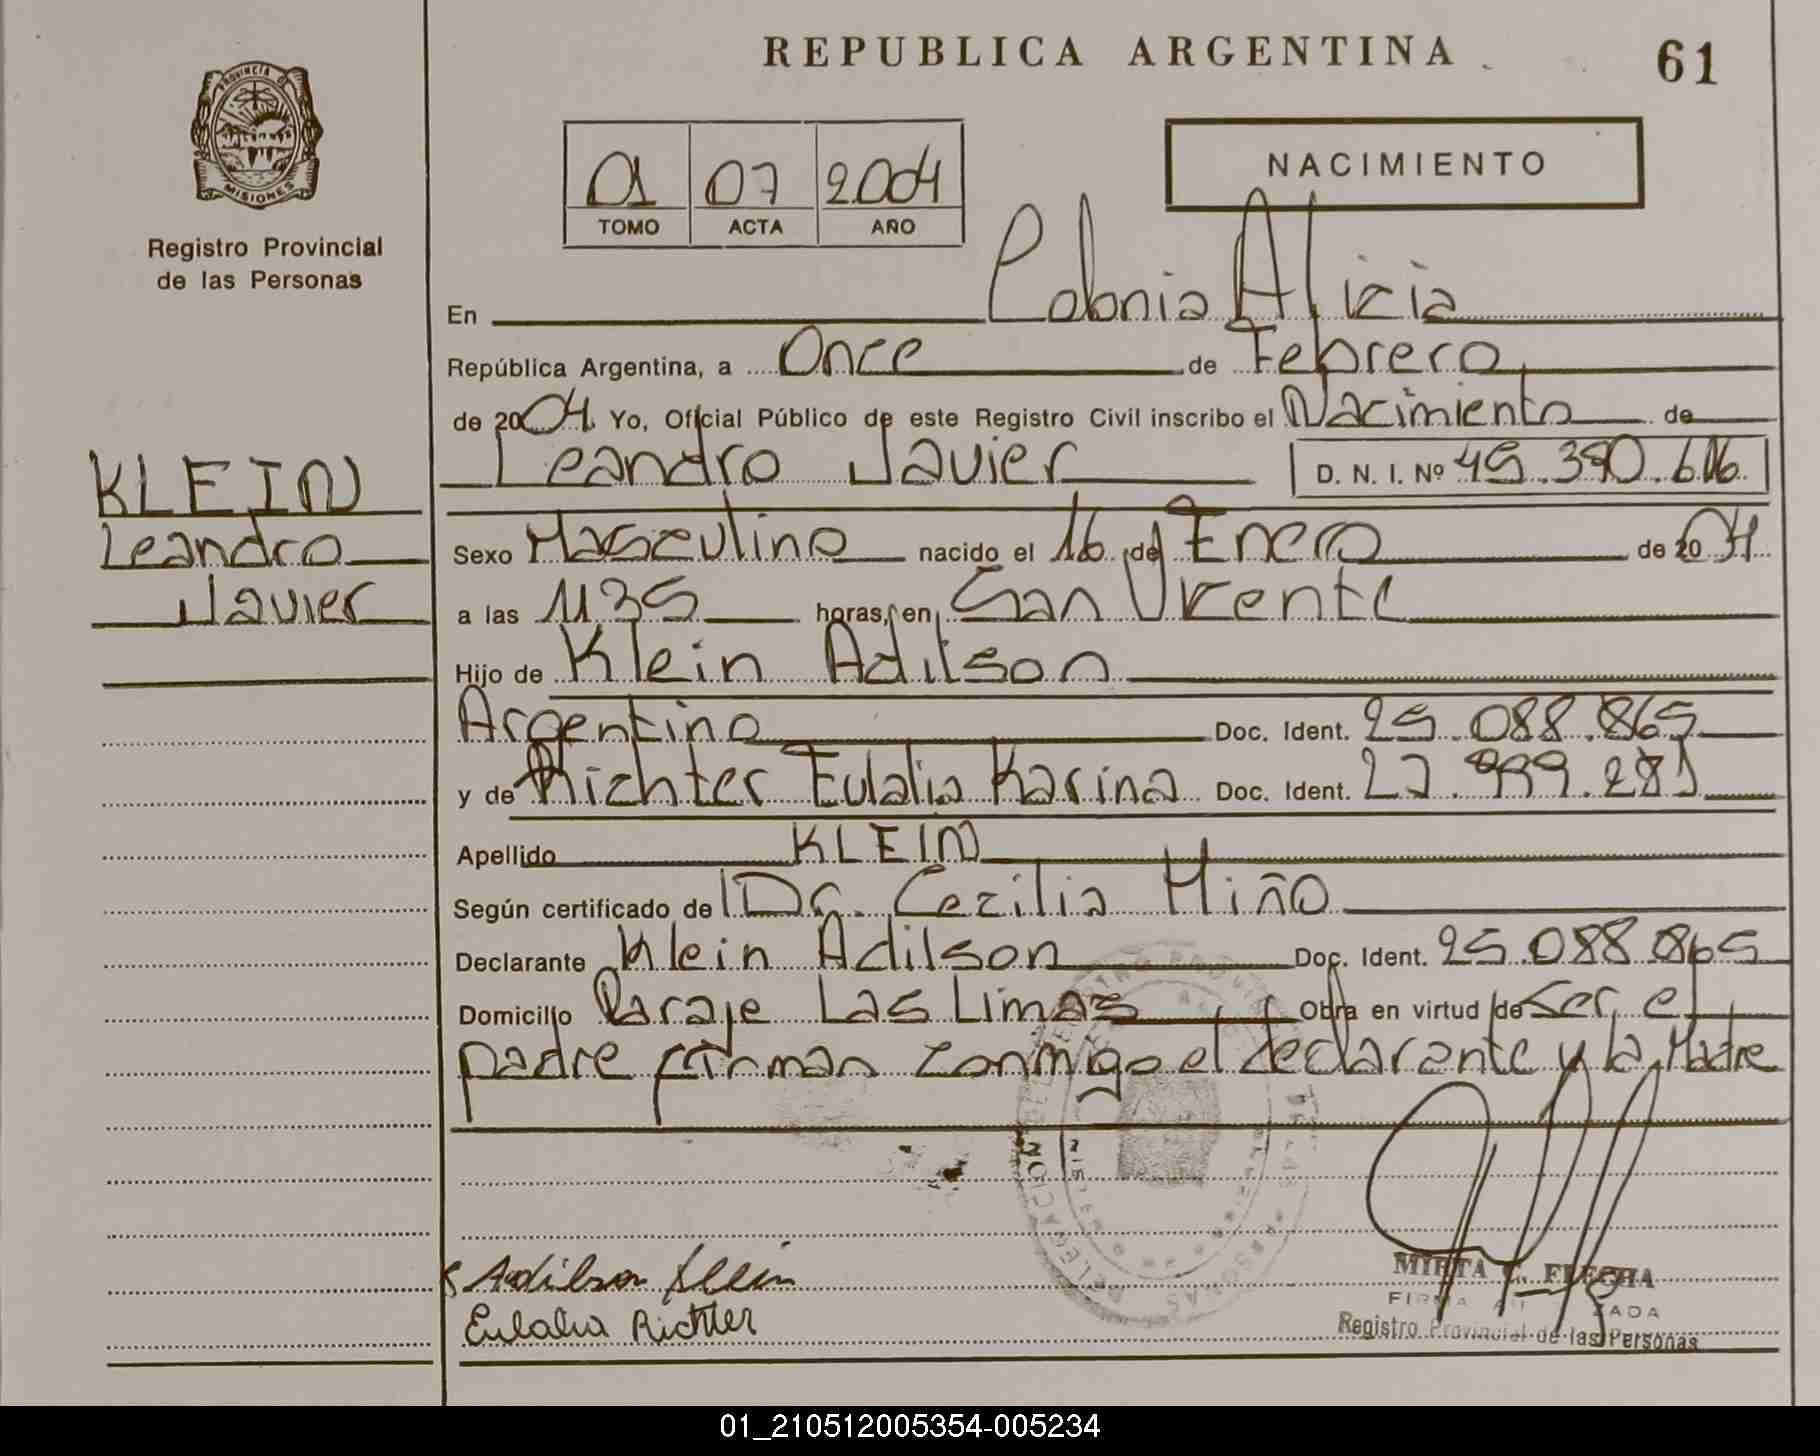 REPUBLICA ARGENTINA
61
PROVINCIA D
MISIONES
Registro Provincial
de las Personas
01 07 2004
TOMO ACTA AÑO
NACIMIENTO
En Colonia Alicia
República Argentina, a Once de Febrero
de 2004 Yo, Oficial Público de este Registro Civil inscribo el Nacimiento de
Leandro Javier D. N. I. Nº
KLEIN
Leandro
Javier
Sexo Masculino nacido el 16 de Enero de 2004
a las 1135 horas, en San Vicente
Hijo de Klein Adilson
Argentino Doc. Ident. 25.088.865
y de Richter Eulalia Karina Doc. Ident.
Apellido KLEIN
Según certificado de Dr. Cecilia Miño
Declarante Klein Adilson Doc. Ident. 25.088.865
Domicilio Paraje Las Limas Obra en virtud de ser el
padre firman conmigo el declarante y la Madre
Adilson Klein
Eulalia Richter
MIRTA FLECHA
FIRMA
Registro Provincial de las Personas
01_210512005354-005234